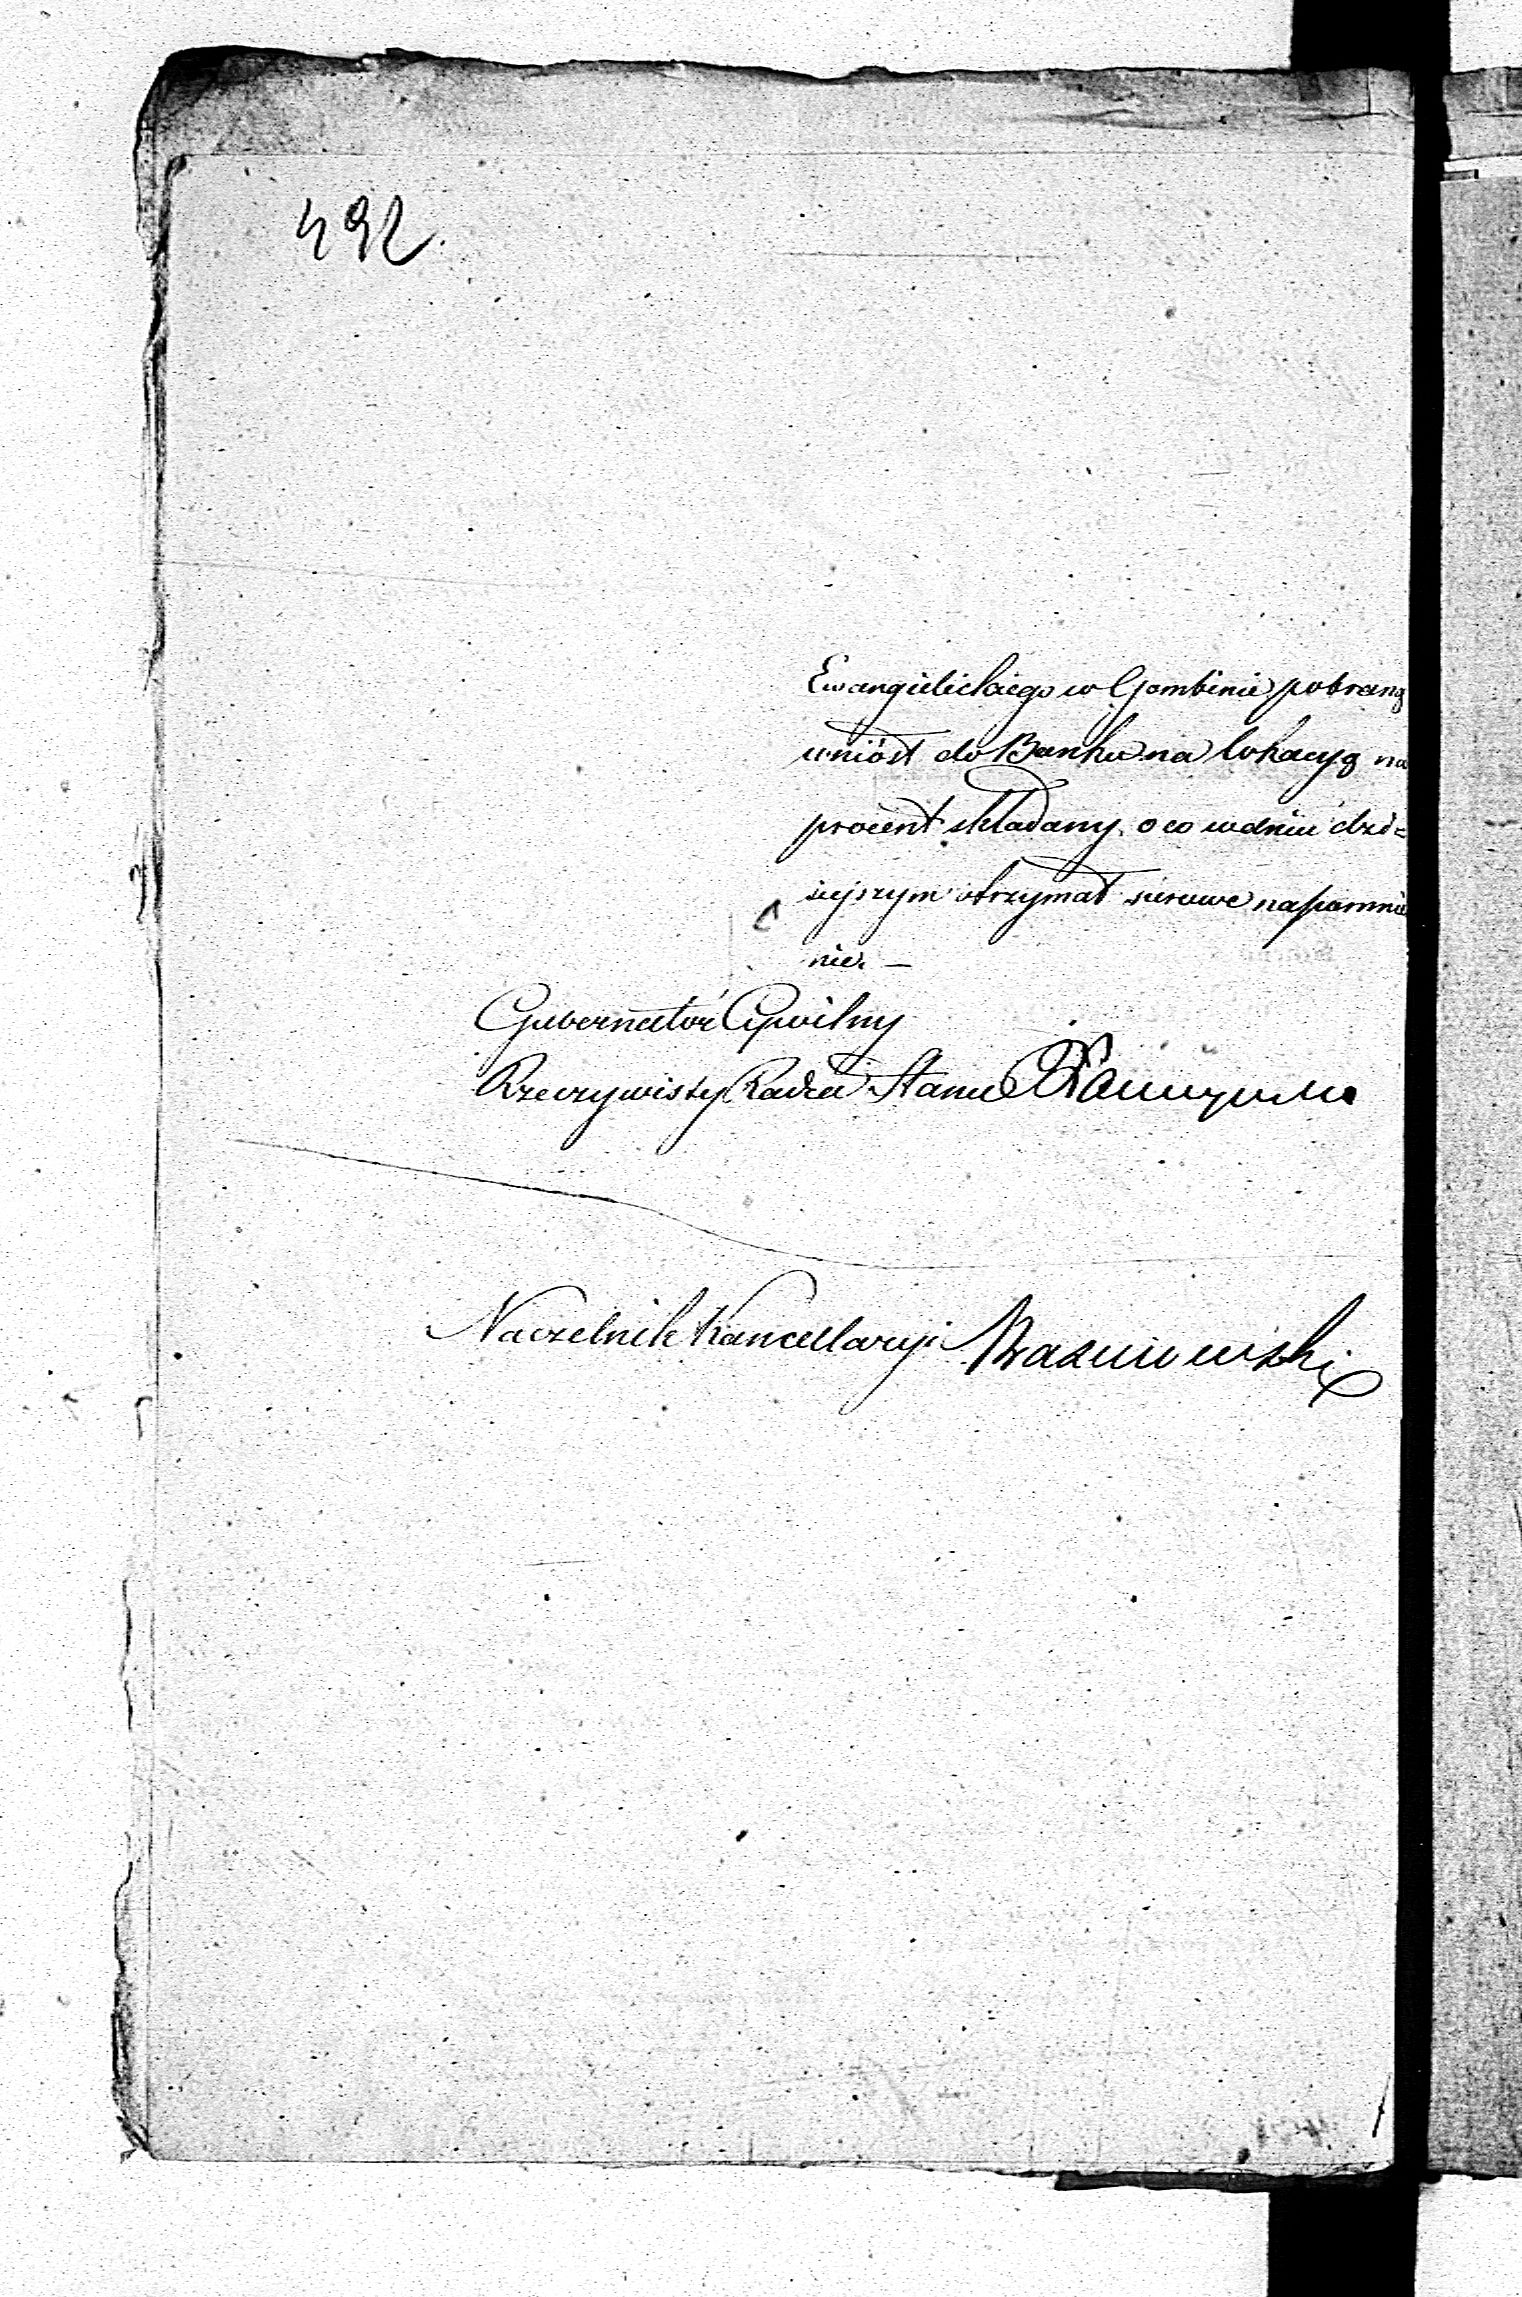 492.
Ewangielickiego w Gombinie pobraną
wniósł do Banku na lokacyą na
procent składany, o co w dniu dzi=
siejszym otrzymał surowe napomnie
nie. —
Gubernator Cywilny
Rzeczywisty Radca Stanu
Naczelnik Kancellaryi